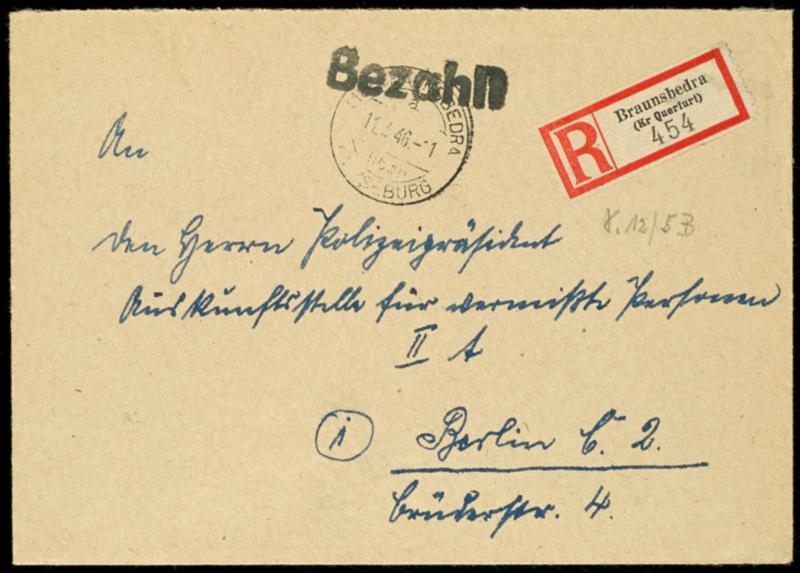 Bezahlt
BEDRA
a
46.-1
BURG
R
Braunsbedra
(Kr Querfurt)
454
An
den Herrn Polizeipräsident
Auskunftsstelle für vermißte Personen
II A
1
Berlin C. 2.
Brüderstr. 4.